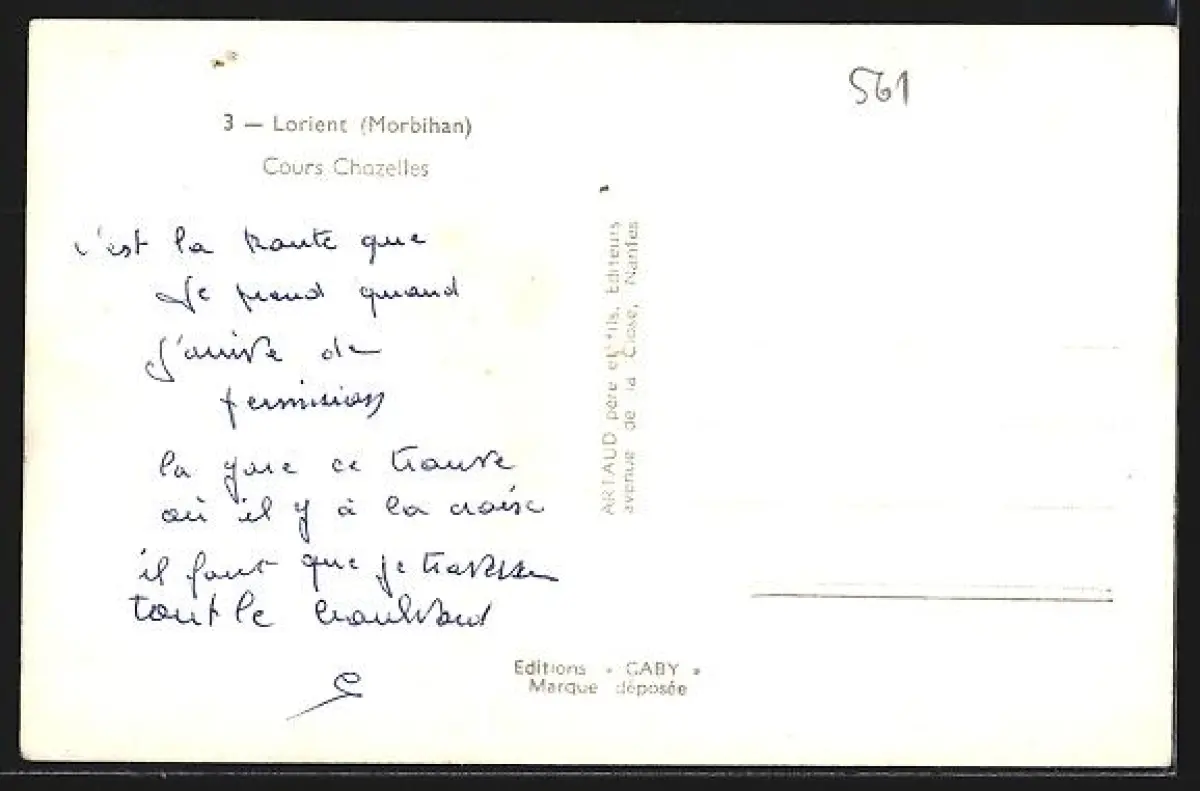 561
3 — Lorient (Morbihan)
Cours Chazelles
c'est la route que
Je prend quand
j'arrive de
permission
la gare ce trouve
où il y à la croix
il faut que je traverse
tout le boulvard
ARTAUD père et fils, Editeurs
avenue de la Close, Nantes
Editions « GABY »
Marque déposée